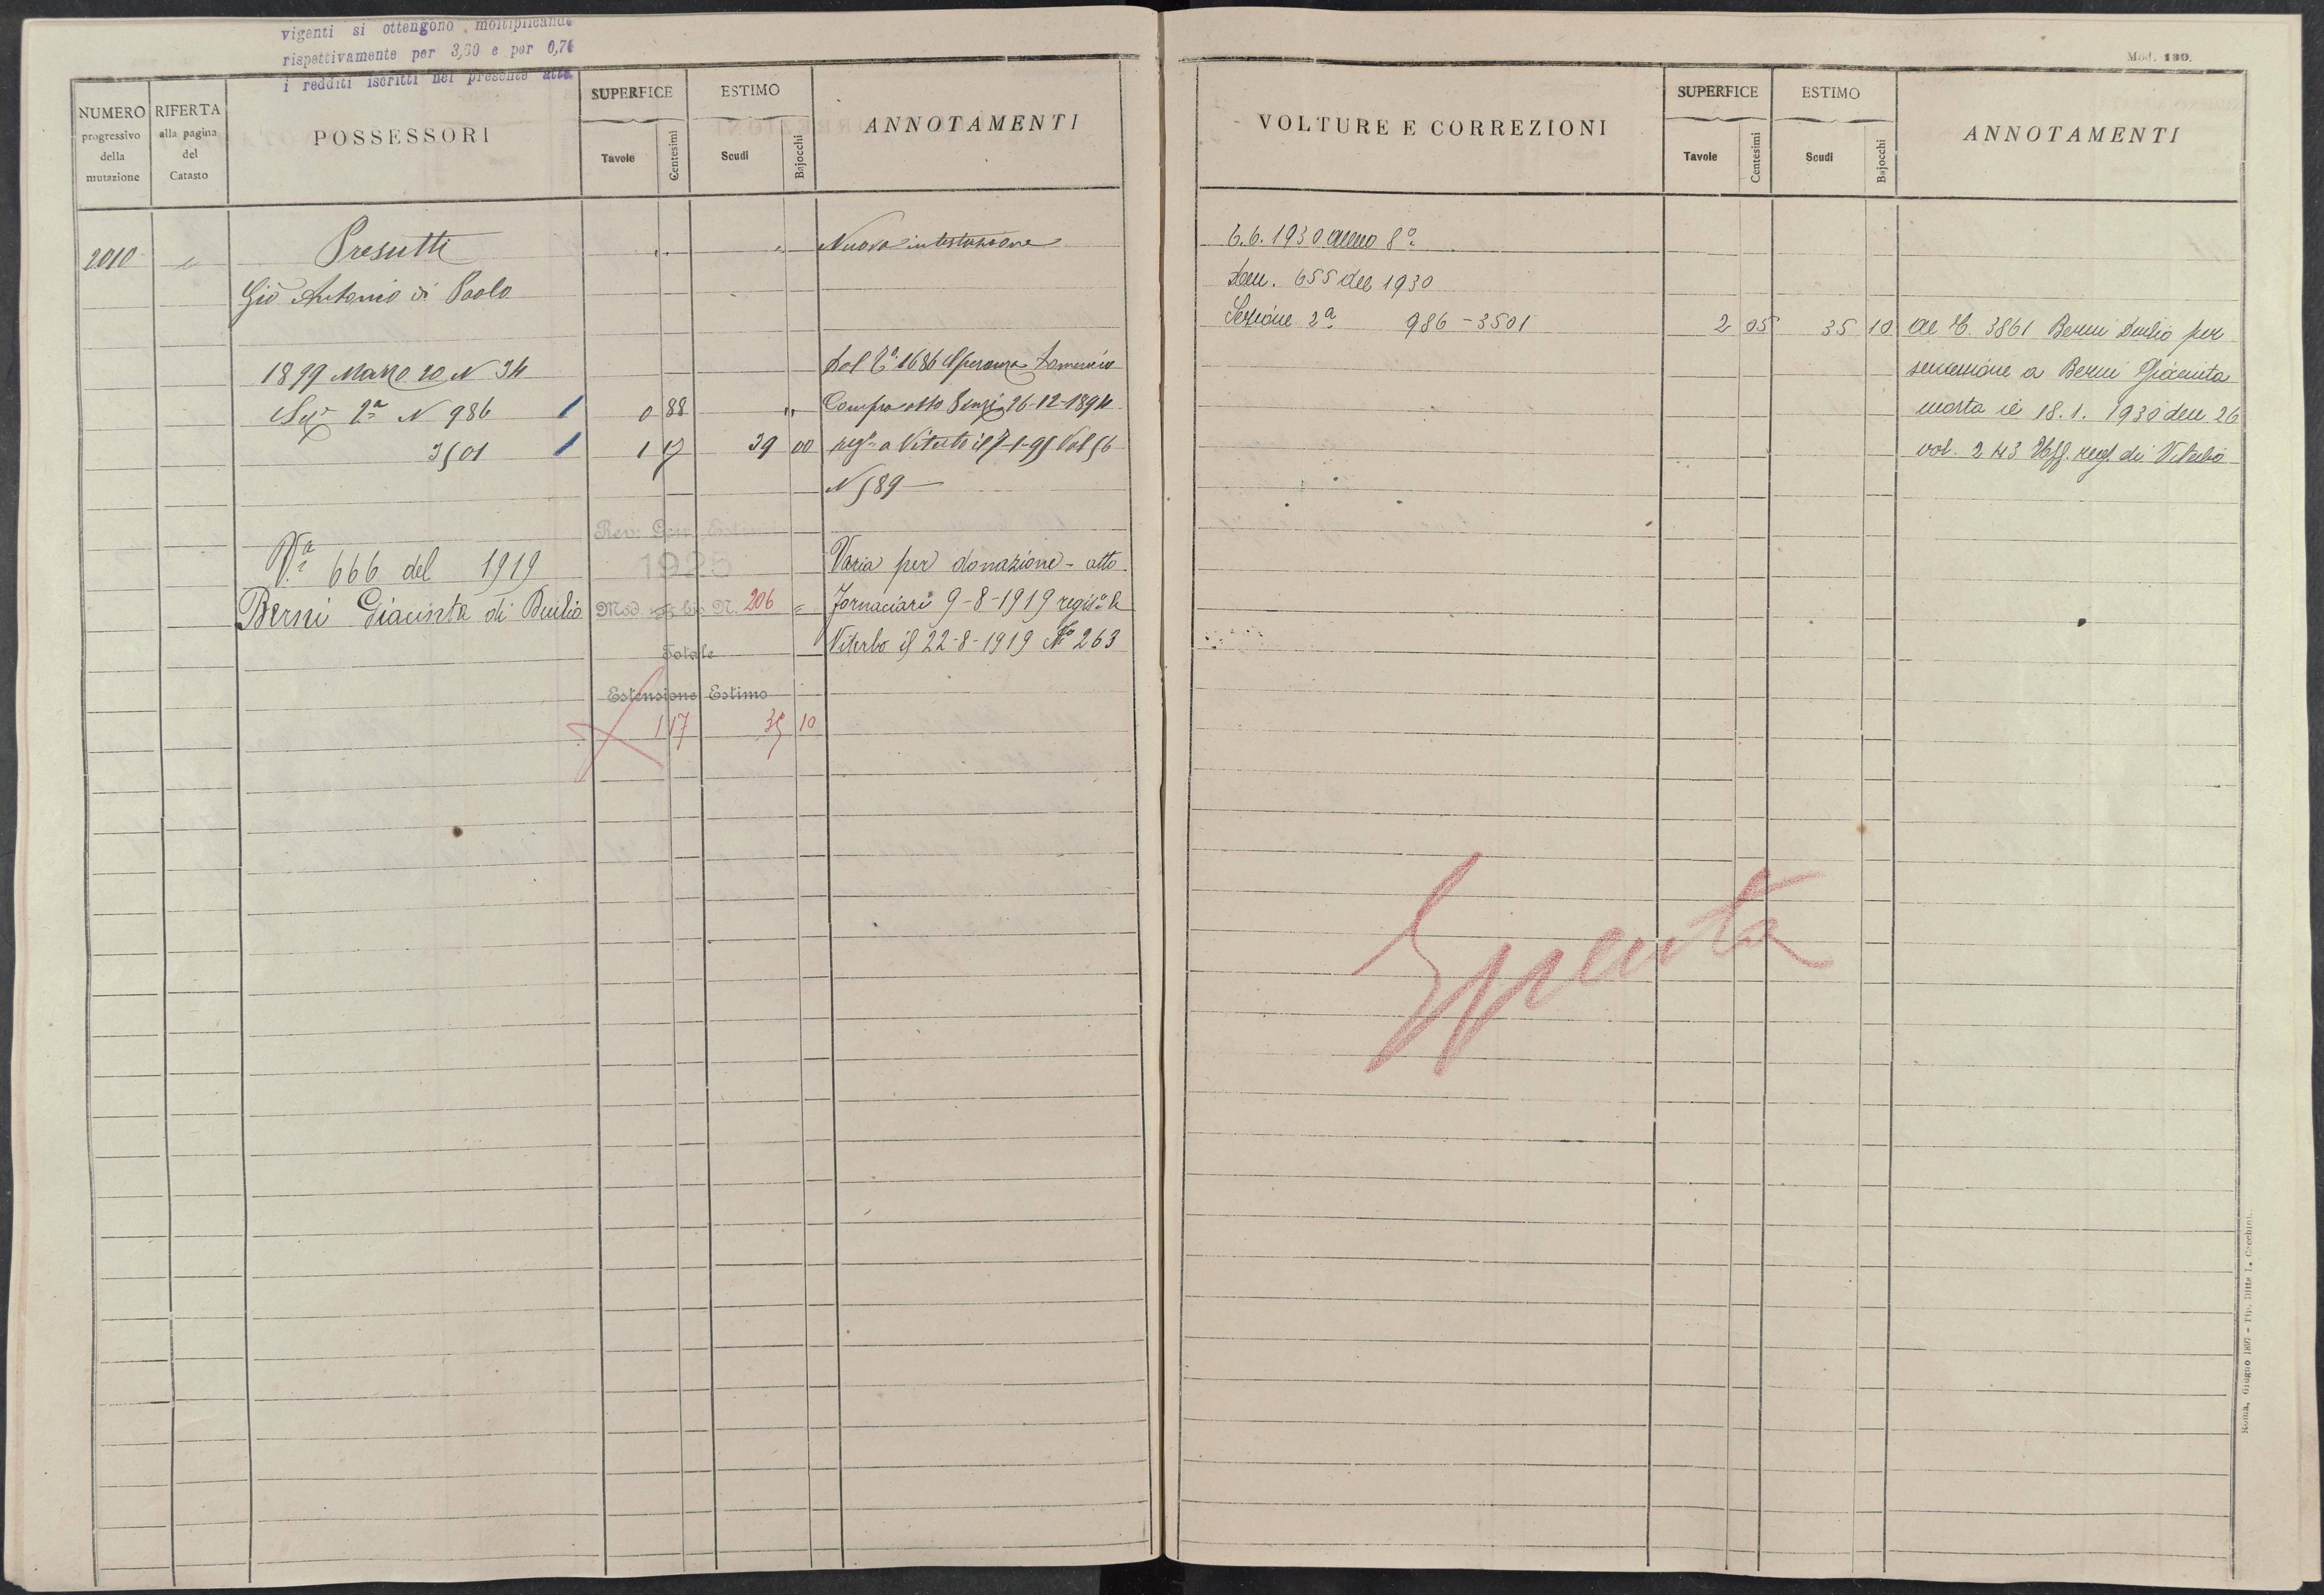 vigenti si ottengono moltiplicando
rispettivamente per 3,60 e per 0,76
i redditi iscritti nel presente atto
NUMERO
progressivo
della
mutazione
RIFERTA
alla pagina
del
Catasto
POSSESSORI
SUPERFICE
Tavole
Centesimi
ESTIMO
Scudi
Bajocchi
ANNOTAMENTI
2010
Presutti
" "
Nuova intestazione
Gio Antonio di Paolo
1899 Marzo 20 N 34
Dal 1686 Speranza Domenico
Sez. 2ª N 986 1 0 88 "
Compra atto Senzi 26-12-1894
3501 1 1 17 39 00
reg. a Viterbo il 7-1-95 Vol 56
N 589
Rev. Gen. Estimi
1925
Vª 666 del 1919
Varia per donazione - atto
Berni Giacinta di Duilio
Mod. bis N. 206 =
Fornaciari 9-8-1919 regis. a
Totale
Viterbo il 22-8-1919 No 263
Estensione Estimo
1 17 35 10
Mod. 130.
VOLTURE E CORREZIONI
SUPERFICE
Tavole
Centesimi
ESTIMO
Scudi
Bajocchi
ANNOTAMENTI
6.6.1930 anno 8º
Den. 655 del 1930
Sezione 2ª 986 - 3501 2 05 35 10 al C. 3861 Berni Duilio per
successione a Berni Giacinta
morta il 18.1.1930 den. 26
vol. 243 Uff. reg. di Viterbo
Spenta
Roma, Giugno 1897 - Tip. Ditta L. Cecchini.